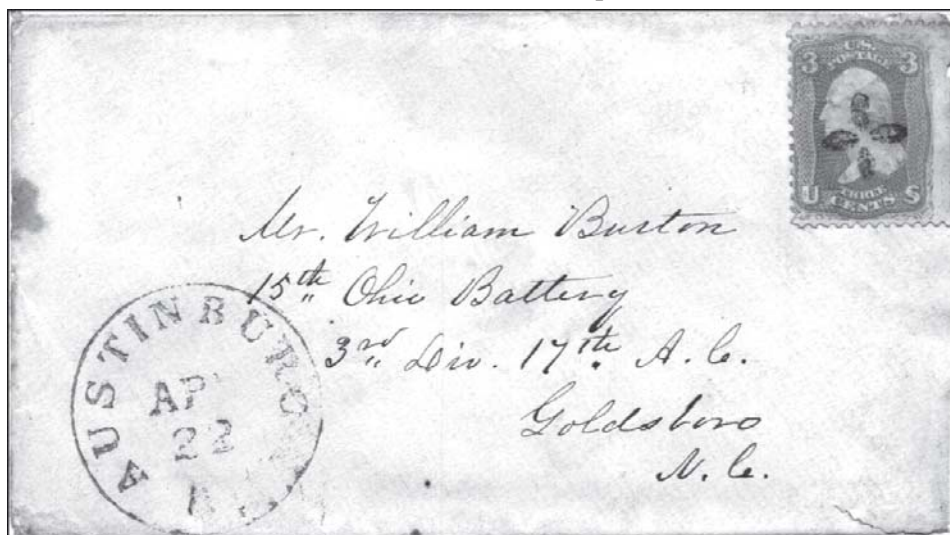 3 U.S. 3
POSTAGE
U THREE S
CENTS
Mr. William Burton
15th Ohio Battery
3rd Div. 17th A. C.
Goldsboro
N. C.
AUSTINBURG
AP
22